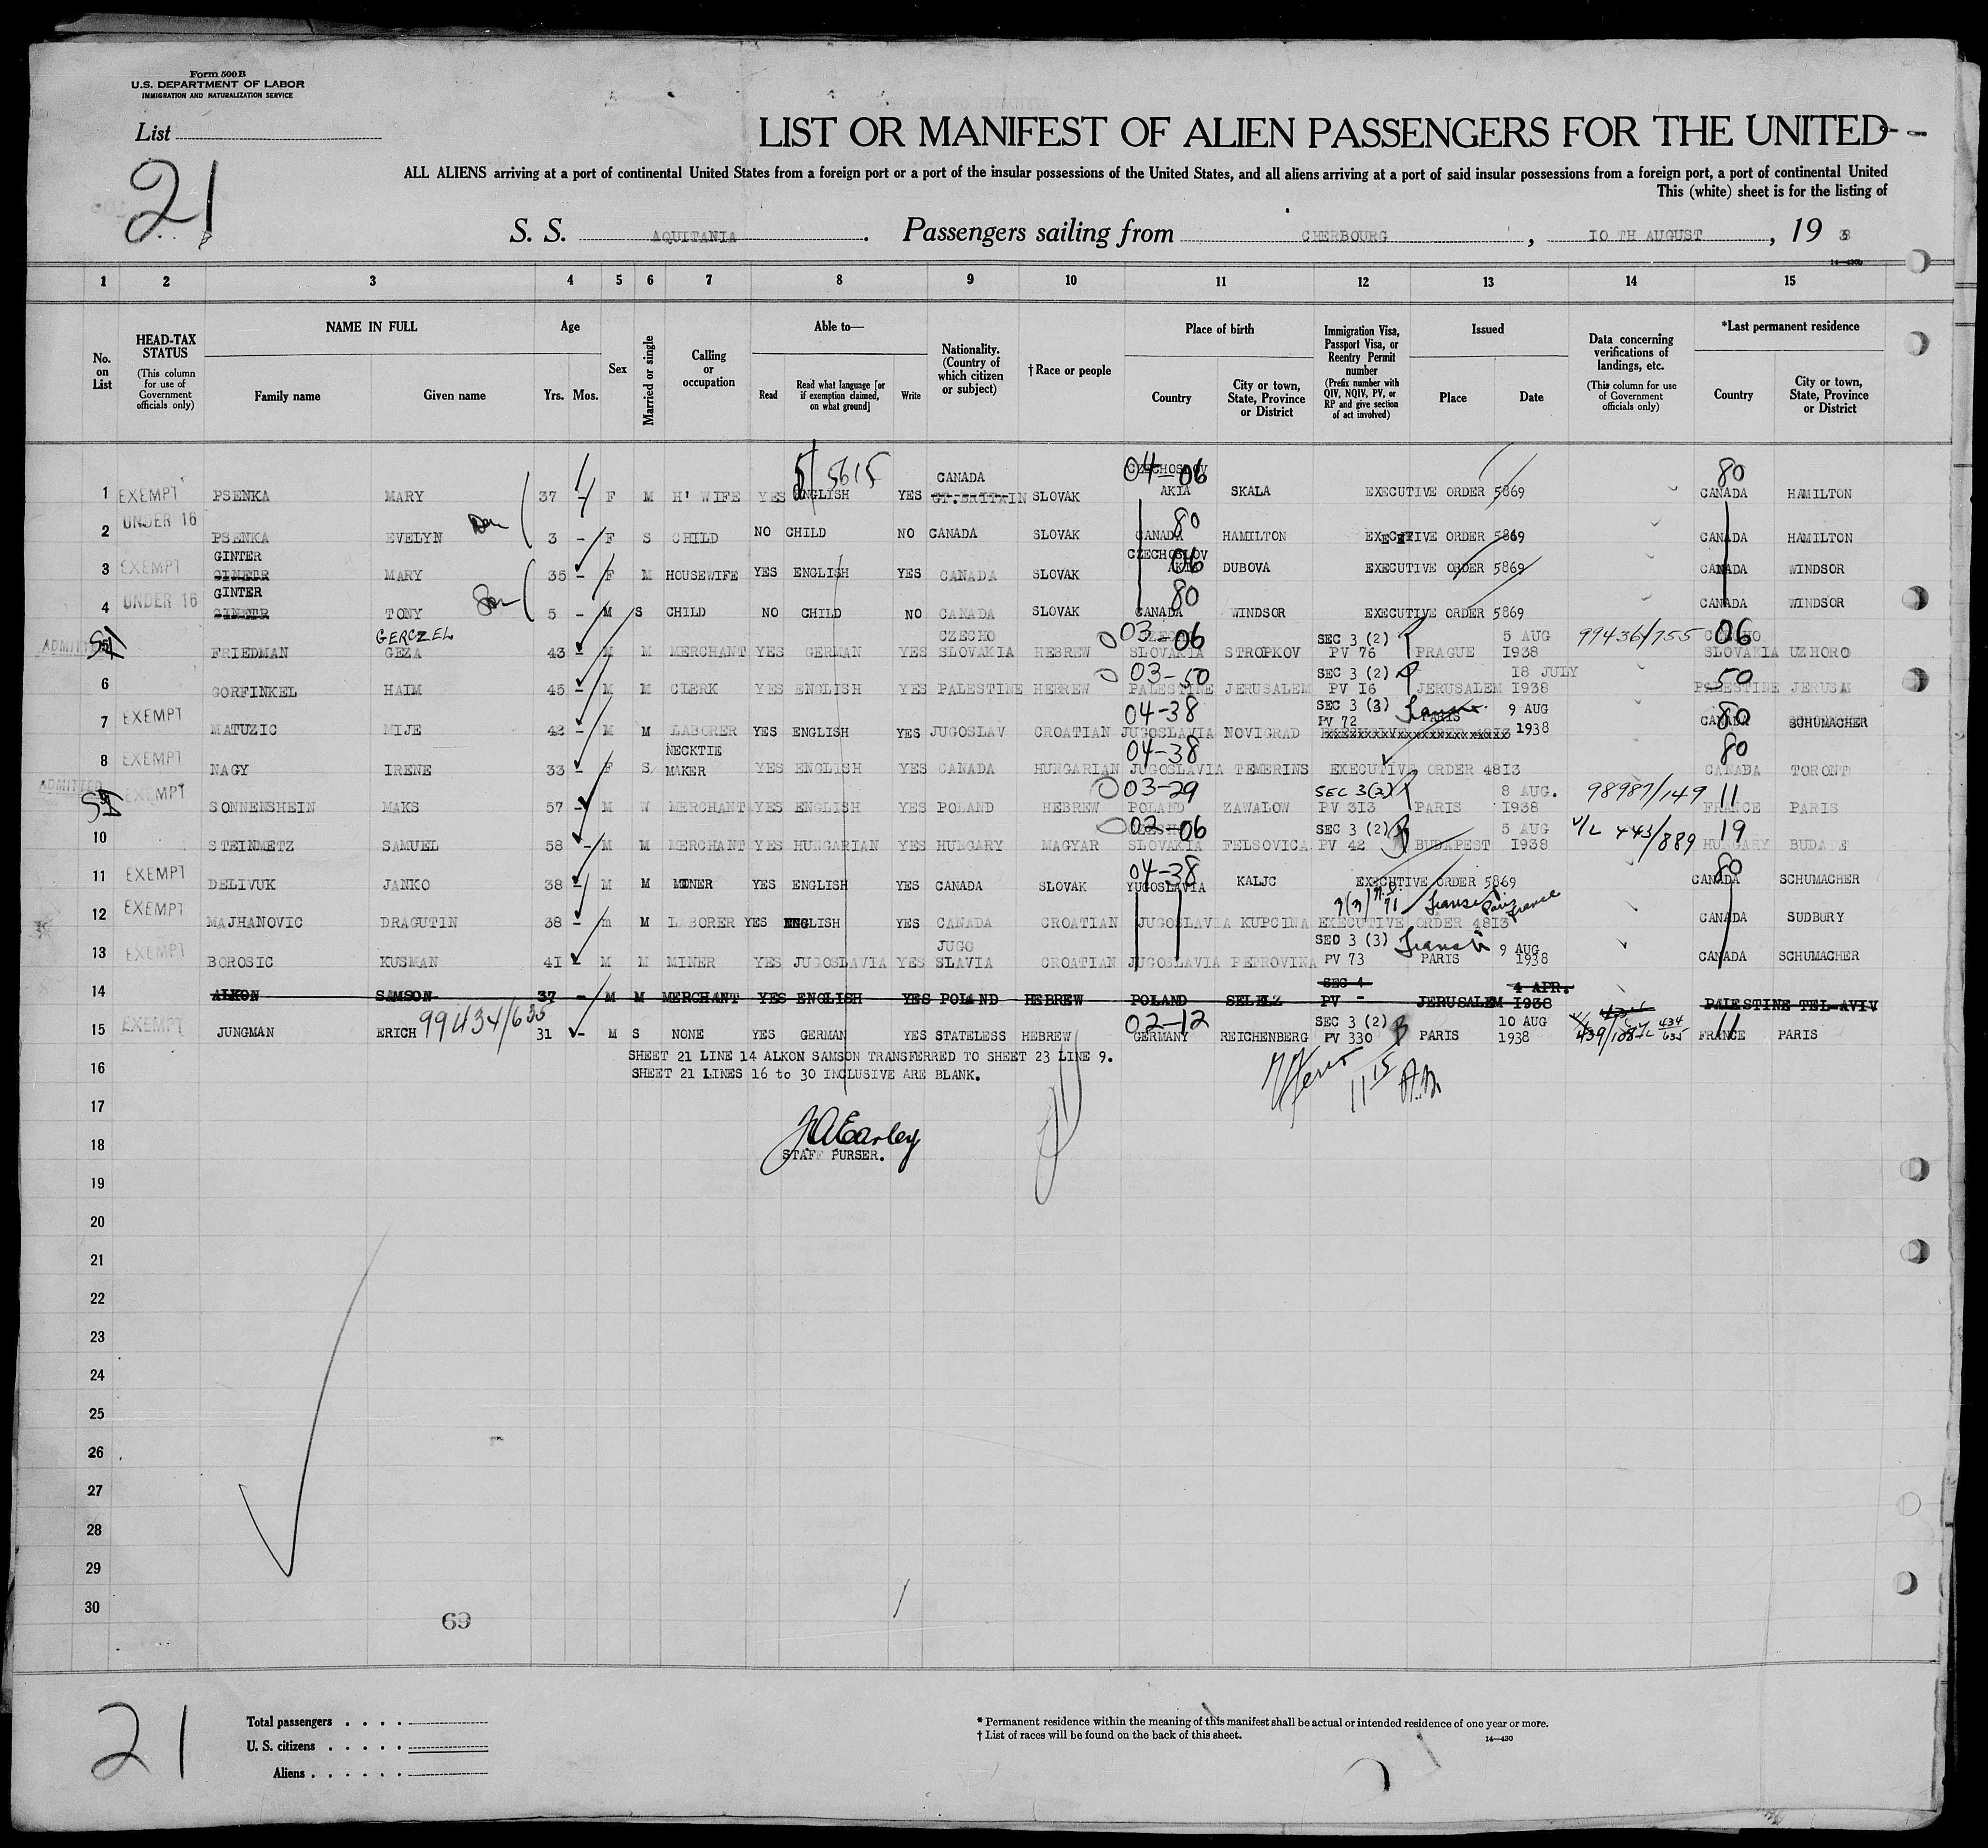 Form 500 B
U.S. DEPARTMENT OF LABOR
IMMIGRATION AND NATURALIZATION SERVICE
List
21
LIST OR MANIFEST OF ALIEN PASSENGERS FOR THE UNITED
ALL ALIENS arriving at a port of continental United States from a foreign port or a port of the insular possessions of the United States, and all aliens arriving at a port of said insular possessions from a foreign port, a port of continental United
This (white) sheet is for the listing of
S. S. AQUITANIA. Passengers sailing from CHERBOURG, 10 TH AUGUST, 19 38
1 2 3 4 5 6 7 8 9 10 11 12 13 14 15
No. on List
HEAD-TAX STATUS (This column for use of Government officials only)
NAME IN FULL
Family name Given name
Age
Yrs. Mos.
Sex
Married or single
Calling or occupation
Able to—
Read Read what language [or if exemption claimed, on what ground] Write
Nationality. (Country of which citizen or subject)
†Race or people
Place of birth
Country City or town, State, Province or District
Immigration Visa, Passport Visa, or Reentry Permit number (Prefix number with QIV, NQIV, PV, or RP and give section of act involved)
Issued
Place Date
Data concerning verifications of landings, etc. (This column for use of Government officials only)
*Last permanent residence
Country City or town, State, Province or District
5/5615 CANADA 04-06 CZECHOSLOV 80
1 EXEMPT PSENKA MARY 37 - F M H' WIFE YES ENGLISH YES GT.BRITAIN SLOVAK AKIA SKALA EXECUTIVE ORDER 5869 CANADA HAMILTON
UNDER 16 80
2 PSENKA EVELYN 3 - F S CHILD NO CHILD NO CANADA SLOVAK CANADA HAMILTON EXECUTIVE ORDER 5869 CANADA HAMILTON
GINTER CZECHOSLOV 06
3 EXEMPT GINETR MARY 35 - F M HOUSEWIFE YES ENGLISH YES CANADA SLOVAK AKIA DUBOVA EXECUTIVE ORDER 5869 CANADA WINDSOR
UNDER 16 GINTER 80
4 GINETR TONY Son 5 - M S CHILD NO CHILD NO CANADA SLOVAK CANADA WINDSOR EXECUTIVE ORDER 5869 CANADA WINDSOR
GERCZEL CZECHO 03-06 SEC 3 (2) 5 AUG 99436/755 06
ADMITTED SI 5 FRIEDMAN GEZA 43 - M M MERCHANT YES GERMAN YES SLOVAKIA HEBREW SLOVAKIA STROPKOV PV 76 PRAGUE 1938 SLOVAKIA UZHORO
03-50 SEC 3 (2) 18 JULY 50
6 GORFINKEL HAIM 45 - M M CLERK YES ENGLISH YES PALESTINE HEBREW PALESTINE JERUSALEM PV 16 JERUSALEM 1938 PALESTINE JERUSA
04-38 SEC 3 (3) Transit 9 AUG 80
7 EXEMPT MATUZIC MIJE 42 - M M LABORER YES ENGLISH YES JUGOSLAV CROATIAN JUGOSLAVIA NOVIGRAD PV 72 PARIS 1938 CANADA SCHUMACHER
NECKTIE 04-38 80
8 EXEMPT NAGY IRENE 33 - F S MAKER YES ENGLISH YES CANADA HUNGARIAN JUGOSLAVIA TEMERINS EXECUTIVE ORDER 4813 CANADA TORONT
03-29 SEC 3(2) 8 AUG. 98987/149 11
ADMITTED SI 9 EXEMPT SONNENSHEIN MAKS 57 - M W MERCHANT YES ENGLISH YES POLAND HEBREW POLAND ZAWALOW PV 313 PARIS 1938 FRANCE PARIS
02-06 SEC 3 (2) 5 AUG V/L 443/889 19
10 STEINMETZ SAMUEL 58 - M M MERCHANT YES HUNGARIAN YES HUNGARY MAGYAR SLOVAKIA FELSOVICA PV 42 BUDAPEST 1938 HUNGARY BUDA
04-38 80
11 EXEMPT DELIVUK JANKO 38 - M M MINER YES ENGLISH YES CANADA SLOVAK YUGOSLAVIA KALJC EXECUTIVE ORDER 5869 CANADA SCHUMACHER
3(3) 71 Transit Paris France
12 EXEMPT MAJHANOVIC DRAGUTIN 38 - m M LABORER YES ENGLISH YES CANADA CROATIAN JUGOSLAVIA KUPCINA EXECUTIVE ORDER 4813 CANADA SUDBURY
JUGO SEC 3 (3) Transit 9 AUG
13 EXEMPT BOROSIC KUSMAN 41 - M M MINER YES JUGOSLAVIA YES SLAVIA CROATIAN JUGOSLAVIA PETROVINA PV 73 PARIS 1938 CANADA SCHUMACHER
SEC 4 4 APR.
14 ALKON SAMSON 37 - M M MERCHANT YES ENGLISH YES POLAND HEBREW POLAND SELELZ PV - JERUSALEM 1938 PALESTINE TEL-AVIV
99434/635 02-12 SEC 3 (2) 10 AUG 11
15 EXEMPT JUNGMAN ERICH 31 - M S NONE YES GERMAN YES STATELESS HEBREW GERMANY REICHENBERG PV 330 PARIS 1938 FRANCE PARIS
SHEET 21 LINE 14 ALKON SAMSON TRANSFERRED TO SHEET 23 LINE 9.
16 SHEET 21 LINES 16 to 30 INCLUSIVE ARE BLANK.
17
18 JA Earley
STAFF PURSER.
19
20
21
22
23
24
25
26
27
28
29
30
69
21
Total passengers
U. S. citizens
Aliens
* Permanent residence within the meaning of this manifest shall be actual or intended residence of one year or more.
† List of races will be found on the back of this sheet.
14—430